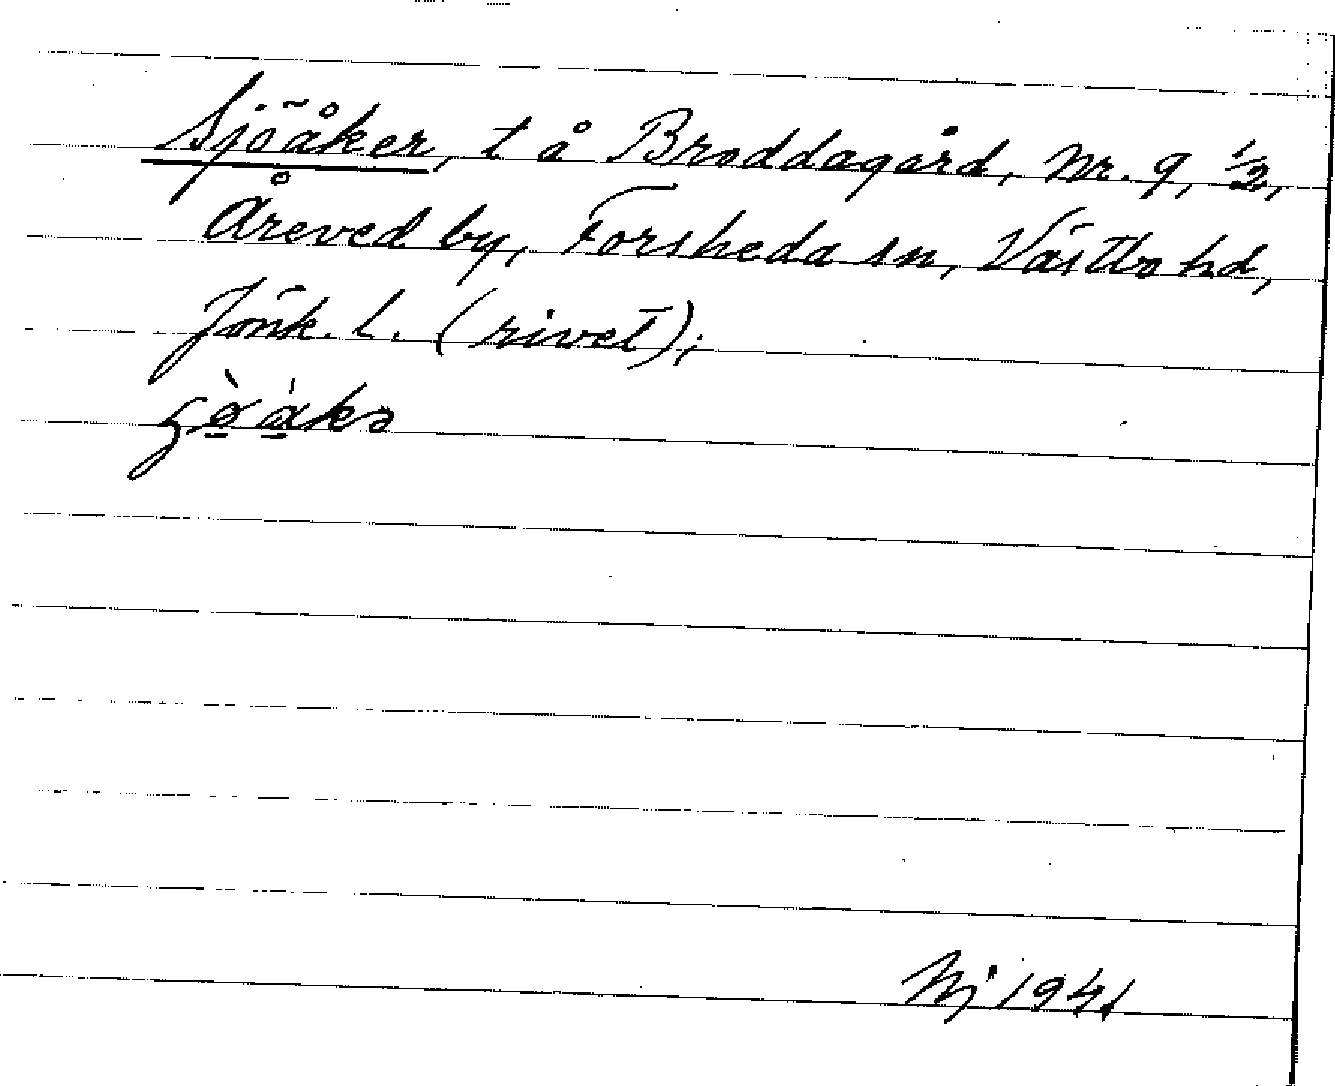 Sjöåker, t å Broddagård, Nr. 9, 1/2,
Åreved by, Forsheda sn, Västbo hd,
Jönk. l. (rivet);
Nj 1941